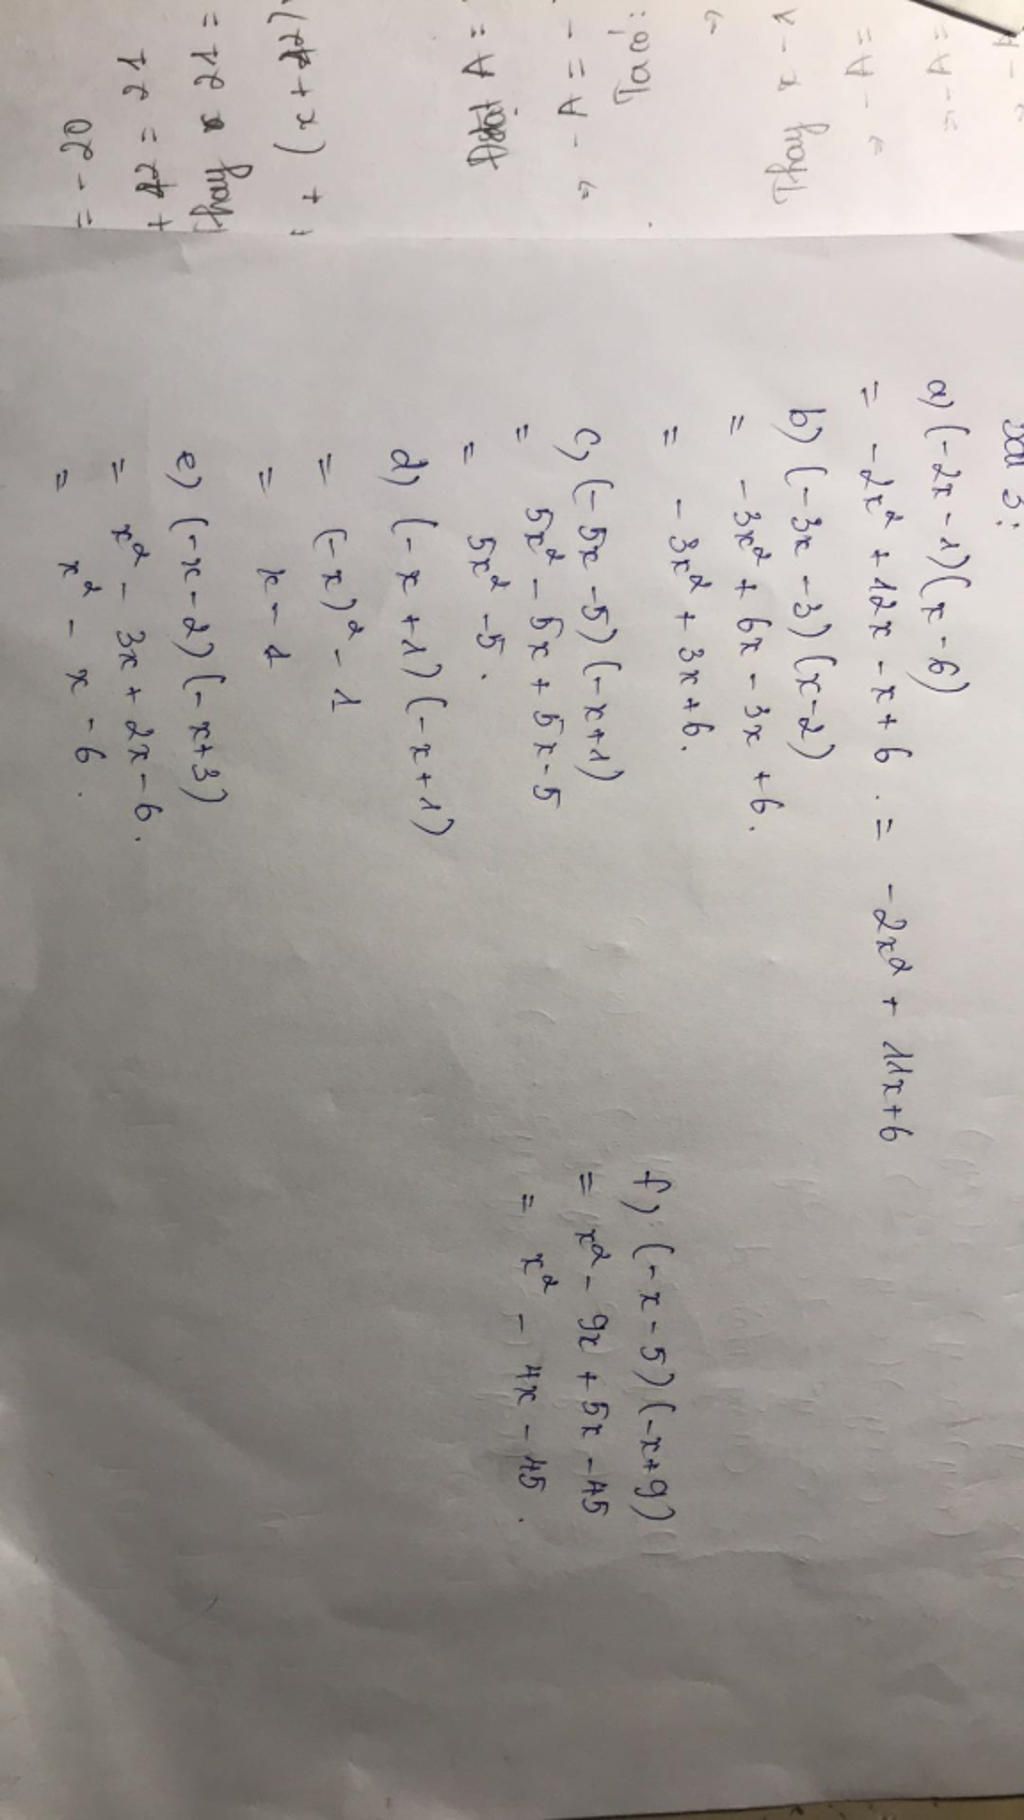 Bài 3:
a) (-2x - 1)(x - 6)
= -2x² + 12x - x + 6 . = -2x² + 11x + 6
b) (-3x - 3)(x - 2)
= -3x² + 6x - 3x + 6.
= -3x² + 3x + 6.
c) (-5x - 5)(-x + 1)
= 5x² - 5x + 5x - 5
= 5x² - 5.
d) (-x + 1)(-x + 1)
= (-x)² - 1
= x - 1
e) (-x - 2)(-x + 3)
= x² - 3x + 2x - 6.
= x² - x - 6.
f) (-x - 5)(-x + 9)
= x² - 9x + 5x - 45
= x² - 4x - 45.
⇒ - A =
⇒ - A =
Thay x - 1
⇒
Ta có:
⇒ - A = -
Đặt A =
+ (x + 42)
Thay x 21 =
+ 42 = 21
= - 20